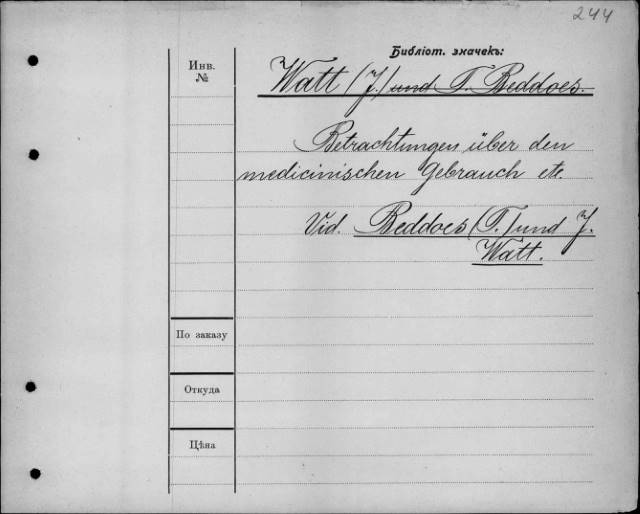 244
Библіот. значекъ:
Инв.
№
Watt (J.) und T. Beddoes.
Betrachtungen über den
medicinischen Gebrauch etc.
Vid. Beddoes (T.) und J.
Watt.
По заказу
Откуда
Цѣна